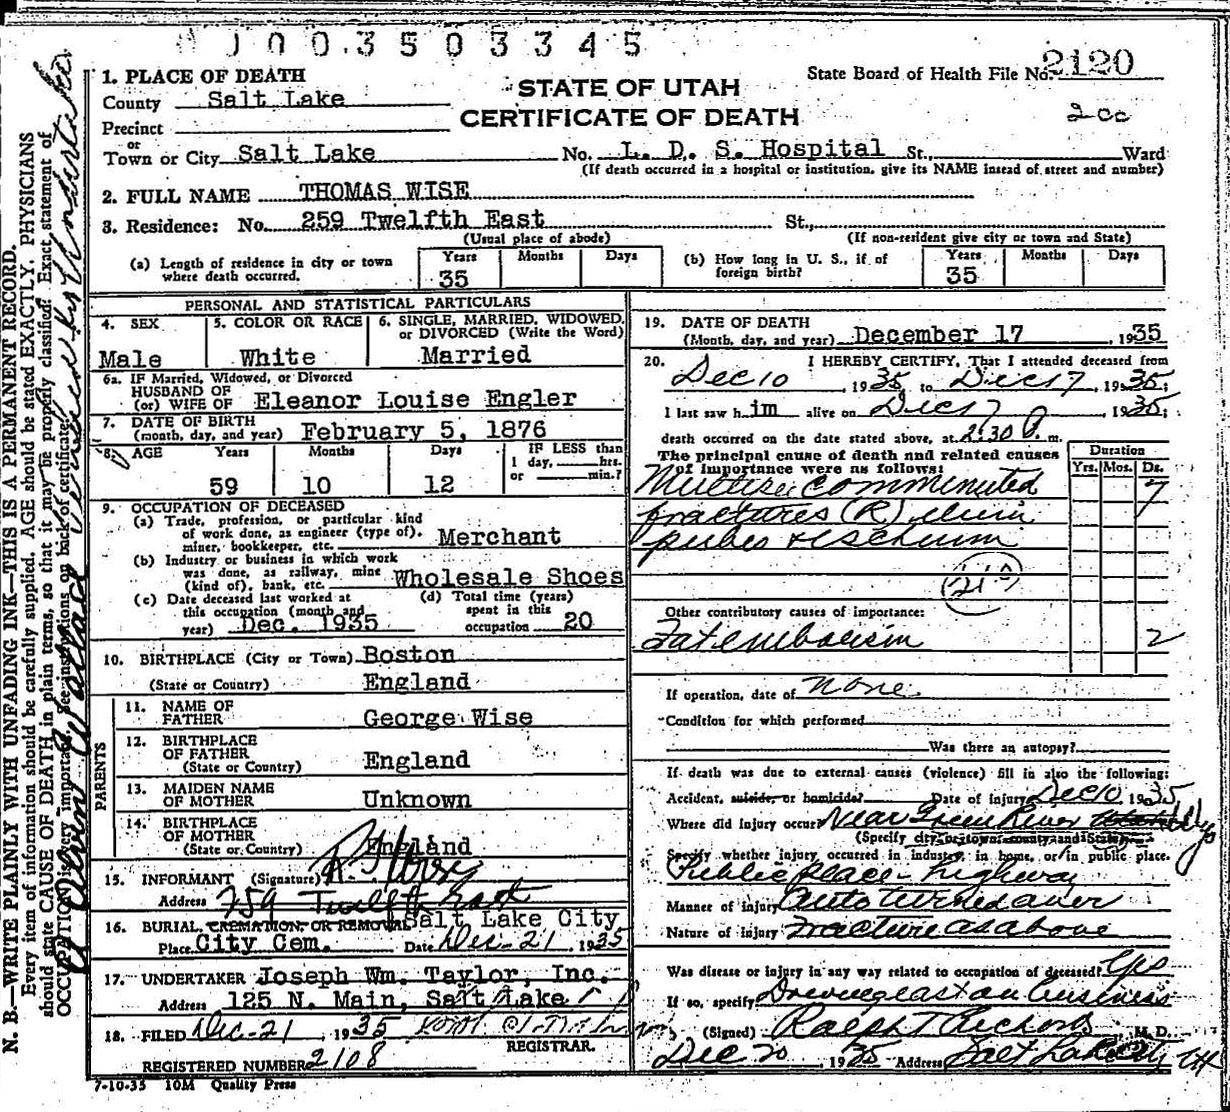 1003503345
1. PLACE OF DEATH
County Salt Lake
Precinct
or
Town or City Salt Lake No. L. D. S. Hospital St., Ward
(If death occurred in a hospital or institution, give its NAME insead of street and number)
STATE OF UTAH
CERTIFICATE OF DEATH
State Board of Health File No. 2120
2 cc
2. FULL NAME THOMAS WISE
3. Residence: No. 259 Twelfth East St.,
(Usual place of abode) (If non-resident give city or town and State)
(a) Length of residence in city or town where death occurred. Years 35 Months Days
(b) How long in U. S., if of foreign birth? Years 35 Months Days
PERSONAL AND STATISTICAL PARTICULARS
4. SEX Male
5. COLOR OR RACE White
6. SINGLE, MARRIED, WIDOWED, or DIVORCED (Write the Word) Married
6a. IF Married, Widowed, or Divorced
HUSBAND OF
(or) WIFE OF Eleanor Louise Engler
7. DATE OF BIRTH
(month, day, and year) February 5, 1876
8. AGE Years 59 Months 10 Days 12 IF LESS than 1 day, hrs. or min.?
9. OCCUPATION OF DECEASED
(a) Trade, profession, or particular kind
of work done, as engineer (type of).
miner, bookkeeper, etc. Merchant
(b) Industry or business in which work
was done, as railway, mine
(kind of), bank, etc. Wholesale Shoes
(c) Date deceased last worked at
this occupation (month and
year) Dec. 1935
(d) Total time (years)
spent in this
occupation 20
10. BIRTHPLACE (City or Town) Boston
(State or Country) England
PARENTS
11. NAME OF
FATHER George Wise
12. BIRTHPLACE
OF FATHER
(State or Country) England
13. MAIDEN NAME
OF MOTHER Unknown
14. BIRTHPLACE
OF MOTHER
(State or Country) England
15. INFORMANT (Signature)
Address 259 Twelfth East
16. BURIAL, CREMATION, OR REMOVAL Salt Lake City
Place City Cem. Date Dec-21 1935
17. UNDERTAKER Joseph Wm. Taylor, Inc.
Address 125 N. Main, Salt Lake
18. FILED Dec-21 1935
REGISTRAR.
REGISTERED NUMBER 2108
7-10-35 10M Quality Press
19. DATE OF DEATH
(Month, day, and year) December 17, 1935
20. I HEREBY CERTIFY, That I attended deceased from
Dec 10, 1935 to Dec 17, 1935;
I last saw h im alive on Dec 17, 1935;
death occurred on the date stated above, at 2:30 P. m.
The principal cause of death and related causes
of importance were as follows:
Duration
Yrs. Mos. Ds.
Multiple comminuted 7
fractures (R) ilium
pubes & ischium
210
Other contributory causes of importance:
Fat embolism 2
If operation, date of None
Condition for which performed
Was there an autopsy?
If death was due to external causes (violence) fill in also the following:
Accident, suicide, or homicide? Date of injury Dec 10 1935
Where did injury occur? Near Green River Wyo
(Specify city or town, county and State)
Specify whether injury occurred in industry, in home, or in public place.
Public place - highway
Manner of injury auto turned over
Nature of injury Fracture as above
Was disease or injury in any way related to occupation of deceased? Yes
If so, specify Driving east on business
(Signed) Ralph T Richards M. D.
Dec 20, 1935 Address Salt Lake City Ut
N. B.—WRITE PLAINLY WITH UNFADING INK—THIS IS A PERMANENT RECORD.
Every item of information should be carefully supplied. AGE should be stated EXACTLY. PHYSICIANS
should state CAUSE OF DEATH in plain terms, so that it may be properly classified. Exact statement of
OCCUPATION is very important. See instructions on back of certificate.